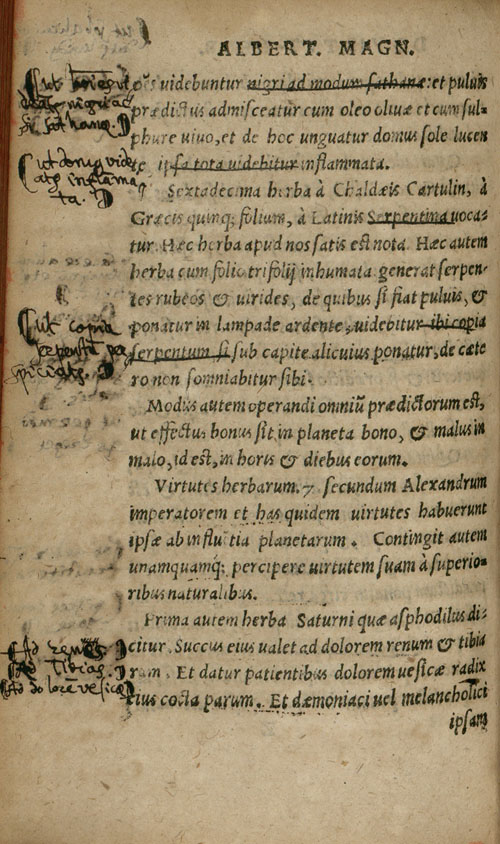 ALBERT. MAGN.
oēs uidebuntur nigri ad modum sathanæ: et puluis
prædictus admisceatur cum oleo oliuæ et cum sul-
phure uiuo, et de hoc unguatur domus sole lucen
te, ipsa tota uidebitur inflammata.
Sextadecima herba à Chaldæis Cartulin, à
Græcis quinq; folium, à Latinis Serpentina uoca-
tur. Hæc herba apud nos satis est nota. Hæc autem
herba cum folio trifolij inhumata generat serpen-
tes rubeos & uirides, de quibus si fiat puluis, &
ponatur in lampade ardente, uidebitur ibi copia
serpentum si sub capite alicuius ponatur, de cæte
ro non somniabitur sibi.
Modus autem operandi omniū prædictorum est,
ut effectus bonus sit in planeta bono, & malus in
malo, id est, in horis & diebus eorum.
Virtutes herbarum. 7 secundum Alexandrum
imperatorem et has quidem uirtutes habuerunt
ipsæ ab influētia planetarum. Contingit autem
unamquamq; percipere uirtutem suam à superio-
ribus naturalibus.
Prima autem herba Saturni quæ asphodilus di-
citur. Succus eius ualet ad dolorem renum & tibia
rum. Et datur patientibus dolorem uesicæ radix
eius cocta parum. Et dæmoniaci uel melancholici
ipsam
Ut
nigri ad
sathanæ
Ut domus vide
inflama
ta.
Ut copia
serpentū
Ad renes
Ad Tibias.
Ad dolorē vesicæ